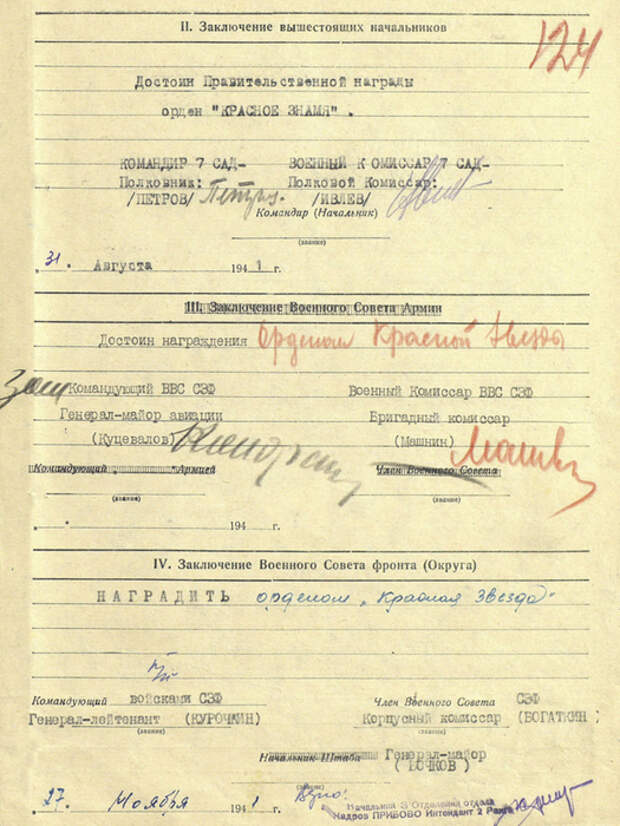 II. Заключение вышестоящих начальников
124
Достоин Правительственной награды
орден "КРАСНОЕ ЗНАМЯ" .
КОМАНДИР 7 САД- ВОЕННЫЙ К ОМИССАР 7 САД-
Полковник: Полковой Комиссар:
/ПЕТРОВ/ Петров. /ИВЛЕВ/
Командир (Начальник)
(звание)
"31." Августа 1941 г.
III. Заключение Военного Совета Армии
Достоин награждения Орденом Красной Звезды
Зам Командующий ВВС СЗФ Военный Комиссар ВВС СЗФ
Генерал-майор авиации Бригадный комиссар
(Куцевалов) (Машнин)
Командующий Армией Член Военного Совета
(звание) (звание)
" " 194 г.
IV. Заключение Военного Совета фронта (Округа)
НАГРАДИТЬ орденом "Красная Звезда"
Командующий войсками СЗФ Член Военного Совета СЗФ
Генерал-лейтенант (КУРОЧКИН) Корпусный комиссар (БОГАТКИН)
(звание) (звание)
Начальник Штаба Генерал-майор
(БОЧКОВ)
(звание)
"27." Ноября 1941 г.
Начальник 3 Отделения отдела
Кадров ПРИБОВО Интендант 2 Ранга